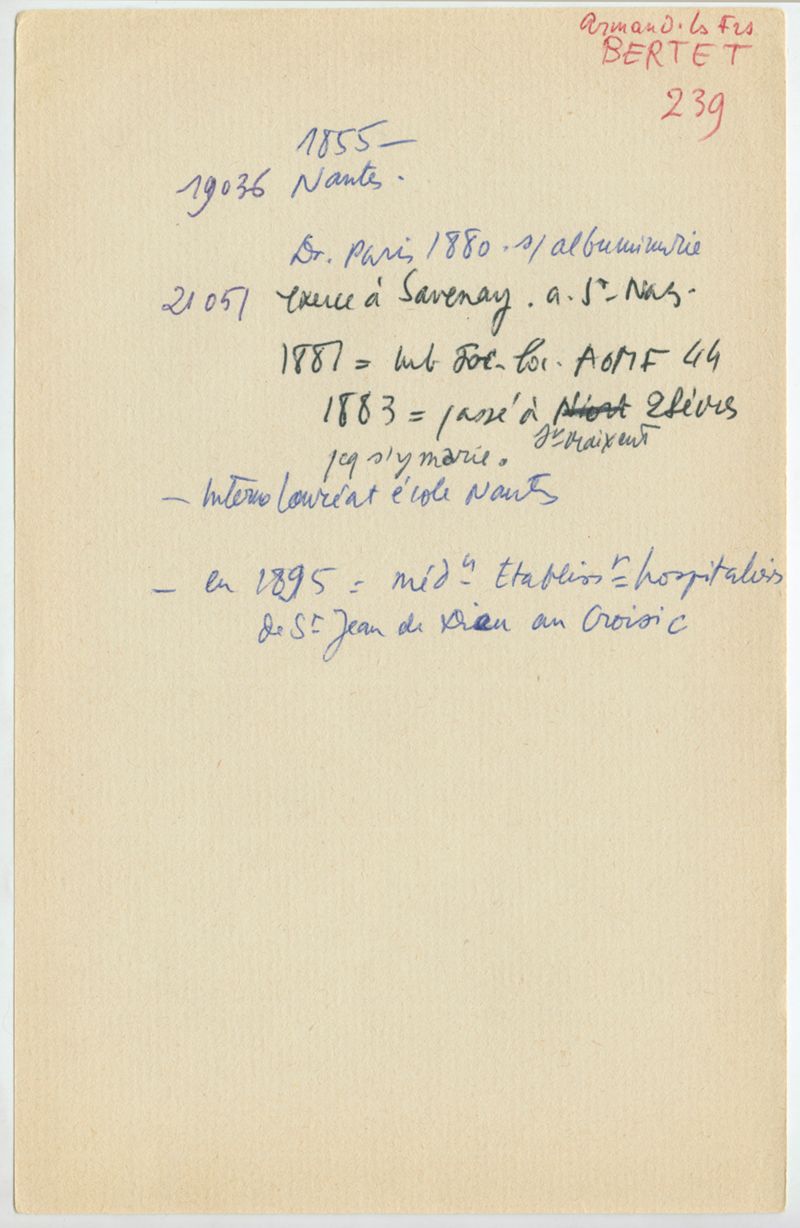 Armand. Ls Frs
BERTET
239
1855 –
19036 Nantes.
Dr. Paris 1880. s/ albuminurie
21051 exerce à Savenay. a. St-Naz.
1881 = mb Soc. loc. AGMF 44
1883 = passé à Niort 2 Sèvres
St-Maixent
pcq s'y marie.
– Interne lauréat école Nantes
– en 1895 = médn Etablisst = hospitaliers
de St Jean de Dieu au Croisic